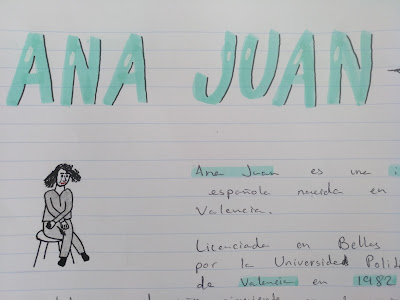 ANA JUAN
Ana Juan es una i
española nacida en
Valencia.
Licenciada en Bellas
por la Universidad Polit
de Valencia en 1982